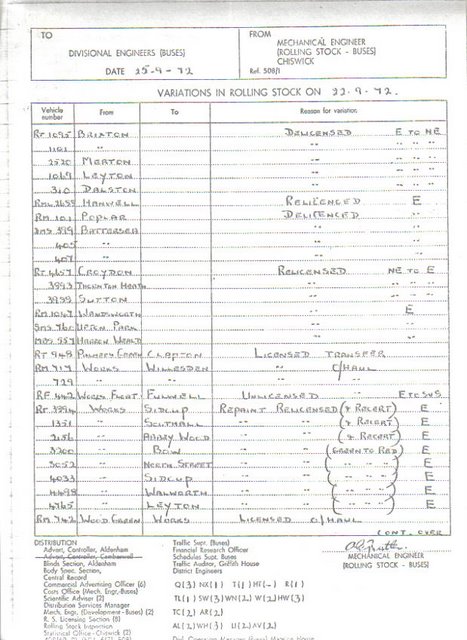 TO
DIVISIONAL ENGINEERS (BUSES)
DATE 25-9-72
FROM
MECHANICAL ENGINEER
(ROLLING STOCK - BUSES)
CHISWICK
Ref. 508/1
VARIATIONS IN ROLLING STOCK ON 22.9.72.
Vehicle number From To Reason for variation
RT 1095 BRIXTON DELICENSED E TO NE
1101 " " " " "
2520 MERTON " " " "
1049 LEYTON " " " "
310 DALSTON " " " "
RML 2655 HANWELL RELICENCED E
RM 101 POPLAR DELICENCED "
DMS 399 BATTERSEA "
405 " "
407 " "
RT 4657 CROYDON RELICENSED NE TO E
3993 THORNTON HEATH " " " "
3999 SUTTON " " " "
RM 1047 WANDSWORTH " E
SMS 760 UPTON PARK "
MBS 557 HARROW WEALD "
RT 948 PALMERS GREEN CLAPTON LICENSED TRANSFER
RM 717 WORKS WILLESDEN " O/HAUL
729 " " " "
RF 442 WORKS FLOAT FULWELL UNLICENSED E TO SVS
RT 3994 WORKS SIDCUP REPAINT RELICENSED (& RECERT) E
1351 " SOUTHALL " " (& RECERT) E
2156 " ABBEY WOOD " " (& RECERT) E
3200 " BOW " " (GREEN TO RED) E
3052 " NORTH STREET " " ( " " " ) E
4033 " SIDCUP " " ( " " " ) E
4498 " WALWORTH " " ( " " " ) E
4765 " LEYTON " " ( " " " ) E
RM 742 WOOD GREEN WORKS LICENSED O/HAUL
CONT. OVER
MECHANICAL ENGINEER
(ROLLING STOCK - BUSES)
DISTRIBUTION
Advert. Controller, Aldenham
Advert. Controller, Camberwell
Blinds Section, Aldenham
Body Spec. Section,
Central Record
Commercial Advertising Officer (6)
Costs Office (Mech. Engr.-Buses)
Scientific Adviser (2)
Distribution Services Manager
Mech. Engr. (Development - Buses) (2)
R. S. Licensing Section (8)
Rolling Stock Inspection
Statistical Office - Chiswick (2)
Traffic Supt. (Buses)
Financial Research Officer
Schedules Supt. Buses
Traffic Auditor, Griffith House
District Engineers
Q(3) NX(1) T(1) HT(-) R(1)
TL(1) SW(3) WN(2) WL(2) HW(3)
TC(2) AR(2)
AL(2) WH(3) U(2) AV(2)